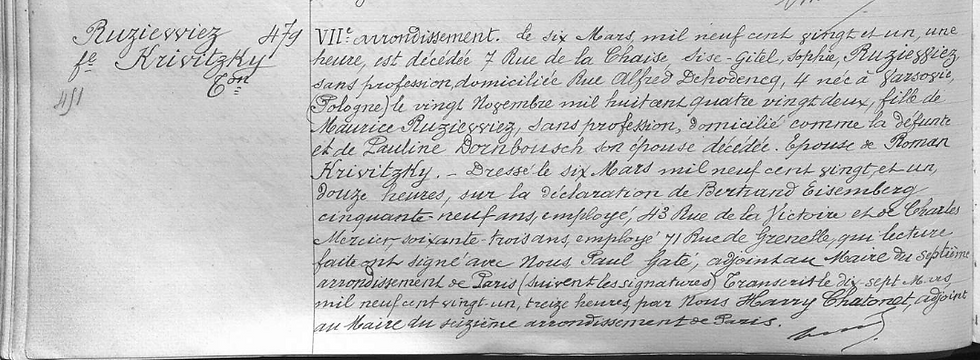 Ruziewiez 479
fe Krivitzky
Con
481
VIIe arrondissement. Le six Mars, mil neuf cent vingt et un, une
heure, est décédée 7 Rue de la Chaise, Sise-Gitel, Sophie, Ruziewiez,
sans profession, domiciliée Rue Alfred Dehodencq, 4 née à Varsovie,
(Pologne) le vingt Novembre mil huit cent quatre vingt deux, fille de
Maurice Ruziewiez, sans profession, domicilié comme la défunte
et de Pauline Dornbousch son épouse décédée. Epouse de Roman
Krivitzky. – Dressé le six Mars mil neuf cent vingt, et un,
douze heures, sur la déclaration de Bertrand Eisemberg
cinquante-neuf ans, employé, 43 Rue de la Victoire et de Charles
Mercier, soixante-trois ans, employé 71 Rue de Grenelle, qui lecture
faite ont signé avec Nous, Paul Gaté, adjoint au Maire du Septième
arrondissement de Paris (suivent les signatures) Transcrit le dix-sept Mars
mil neuf cent vingt un, treize heures, par Nous Harry Chatonet, adjoint
au Maire du seizième arrondissement de Paris.